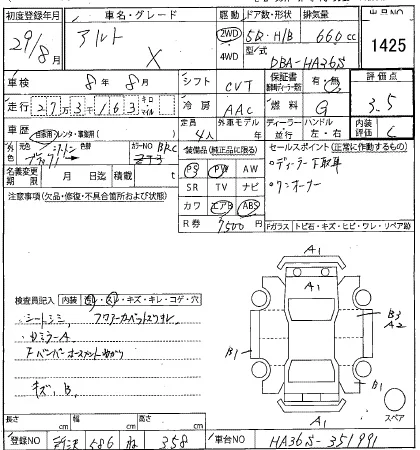 初度登録年月 車名・グレード 駆動 ドア数・形状 排気量 出品NO
29/8月 アルト X 2WD 4WD 5D・H/B 660cc 1425
型/式 DBA-HA36S
車検 8年 8月 シフト CVT 保証書 有・無 評価点 3.5
走行 27万3千163 キロ マイル 冷房 AAC 燃料 G
車歴 自家用・レンタ・事業用( ) 定員 4人 外車モデル 年 ディーラー 並行 ハンドル 左・右 内装評価 C
外色 ブラウン ツートン 色替 カラーNO BRC ZT3
装備品(純正品に限る) セールスポイント(正常に作動するもの)
名義変更期限 月 日迄 積載 t
PS PW AW ・ディーラー下取車
SR TV ナビ ・ワンオーナー
カワ エアB ABS
R券 7500円
注意事項(欠品・修復・不具合箇所および状態)
Fガラス トビ石・キズ・ヒビ・ワレ・リペア跡
検査員記入 内装 ・キズ・キレ・コゲ・穴
・シートシミ フロアーカーペットスリキレ
・ドアミラーA
キズ、B、
A1
A1
B3
A2
B1
B1
A1
スペア
長さ cm 幅 cm 高さ cm
登録NO 所沢 586 ね 358 車台NO HA36S-351991